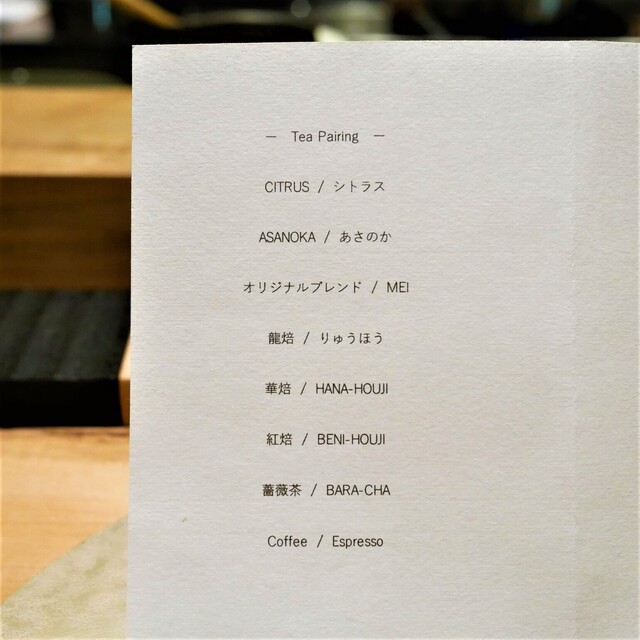 — Tea Pairing —
CITRUS / シトラス
ASANOKA / あさのか
オリジナルブレンド / MEI
龍焙 / りゅうほう
華焙 / HANA-HOUJI
紅焙 / BENI-HOUJI
薔薇茶 / BARA-CHA
Coffee / Espresso